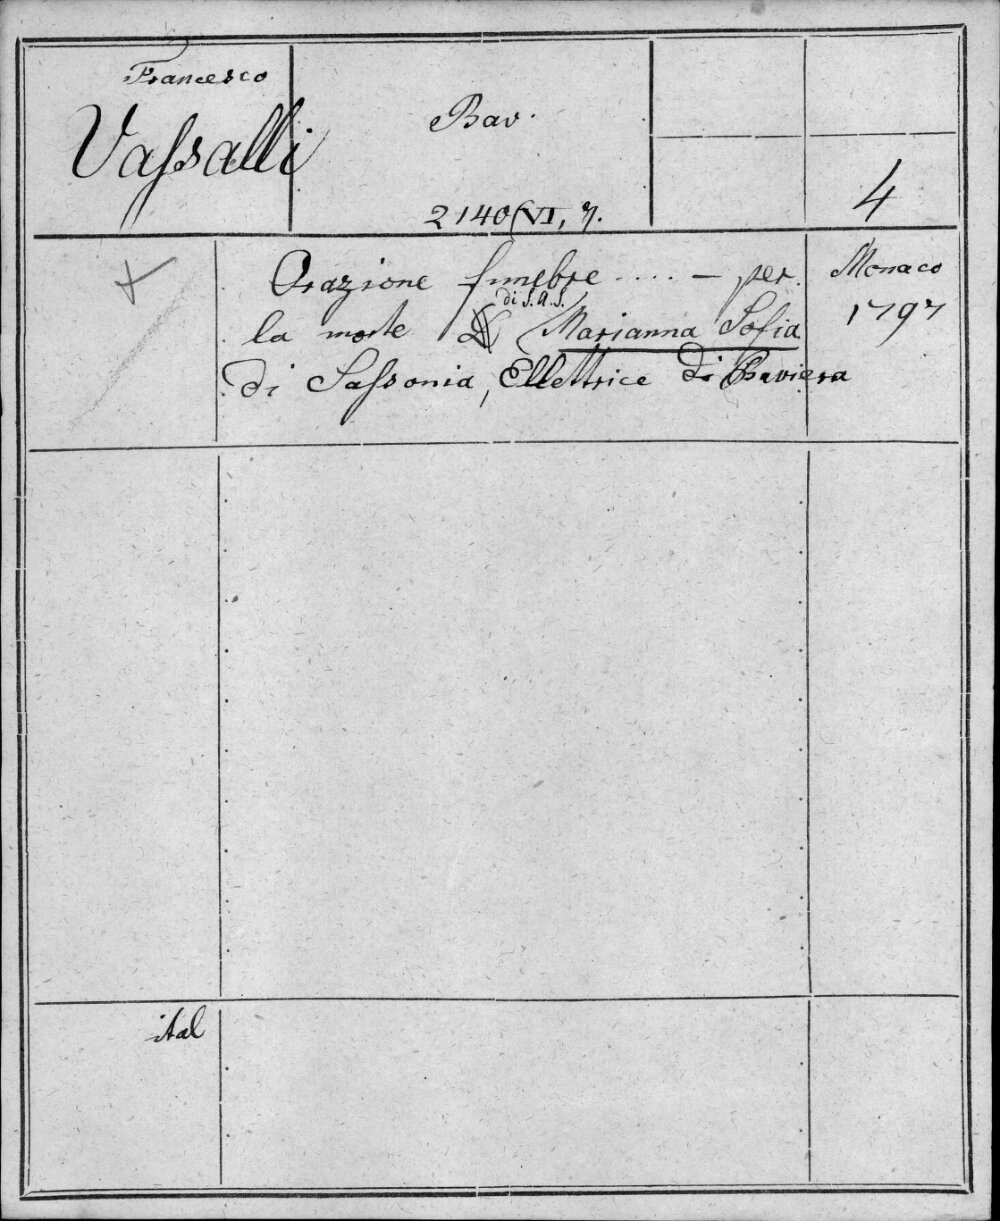 Francesco
Vaſsalli
Bav.
2140(VI, 7.
4
Orazione funebre .... — per
la morte di S.A.S. Marianna Sofia
di Saſsonia, Ellettrice di Baviera
Monaco
1797
ital